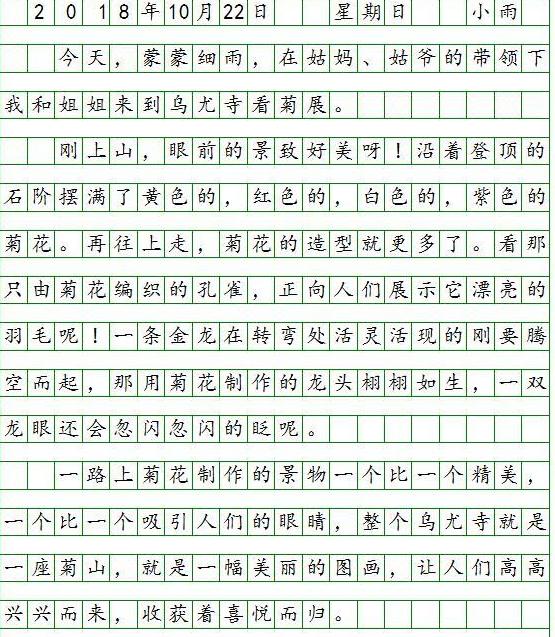 2018年10月22日 星期日 小雨
今天，蒙蒙细雨，在姑妈、姑爷的带领下
我和姐姐来到乌尤寺看菊展。
刚上山，眼前的景致好美呀！沿着登顶的
石阶摆满了黄色的，红色的，白色的，紫色的
菊花。再往上走，菊花的造型就更多了。看那
只由菊花编织的孔雀，正向人们展示它漂亮的
羽毛呢！一条金龙在转弯处活灵活现的刚要腾
空而起，那用菊花制作的龙头栩栩如生，一双
龙眼还会忽闪忽闪的眨呢。
一路上菊花制作的景物一个比一个精美，
一个比一个吸引人们的眼睛，整个乌尤寺就是
一座菊山，就是一幅美丽的图画，让人们高高
兴兴而来，收获着喜悦而归。